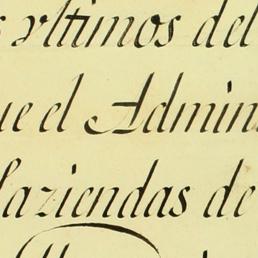 s vltimos del
ue el Admin
aziendas de